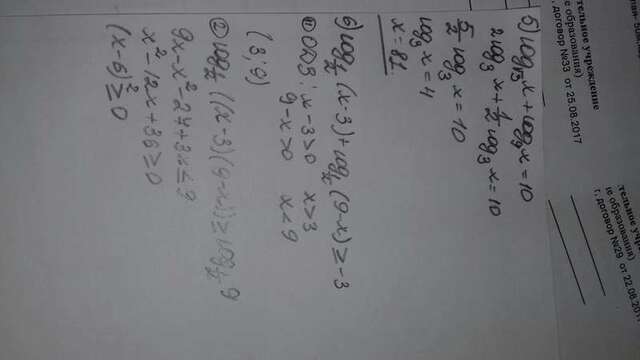 б) log√3 x + log9 x = 10
2 log3 x + 1/2 log3 x = 10
5/2 log3 x = 10
log3 x = 4
x = 81
б) log1/2 (x-3) + log1/2 (9-x) ≥ -3
① ООЗ: x-3>0 x>3
9-x>0 x<9
(3;9)
② log1/2 ((x-3)(9-x)) ≥ log1/2 9
9x-x²-27+3x≤9
x²-12x+36≥0
(x-6)²≥0
тельное учреждение
е образования)
, договор №33 от 25.08.2017
тельное учр
ие образования)
г, договор №29 от 22.08.2017